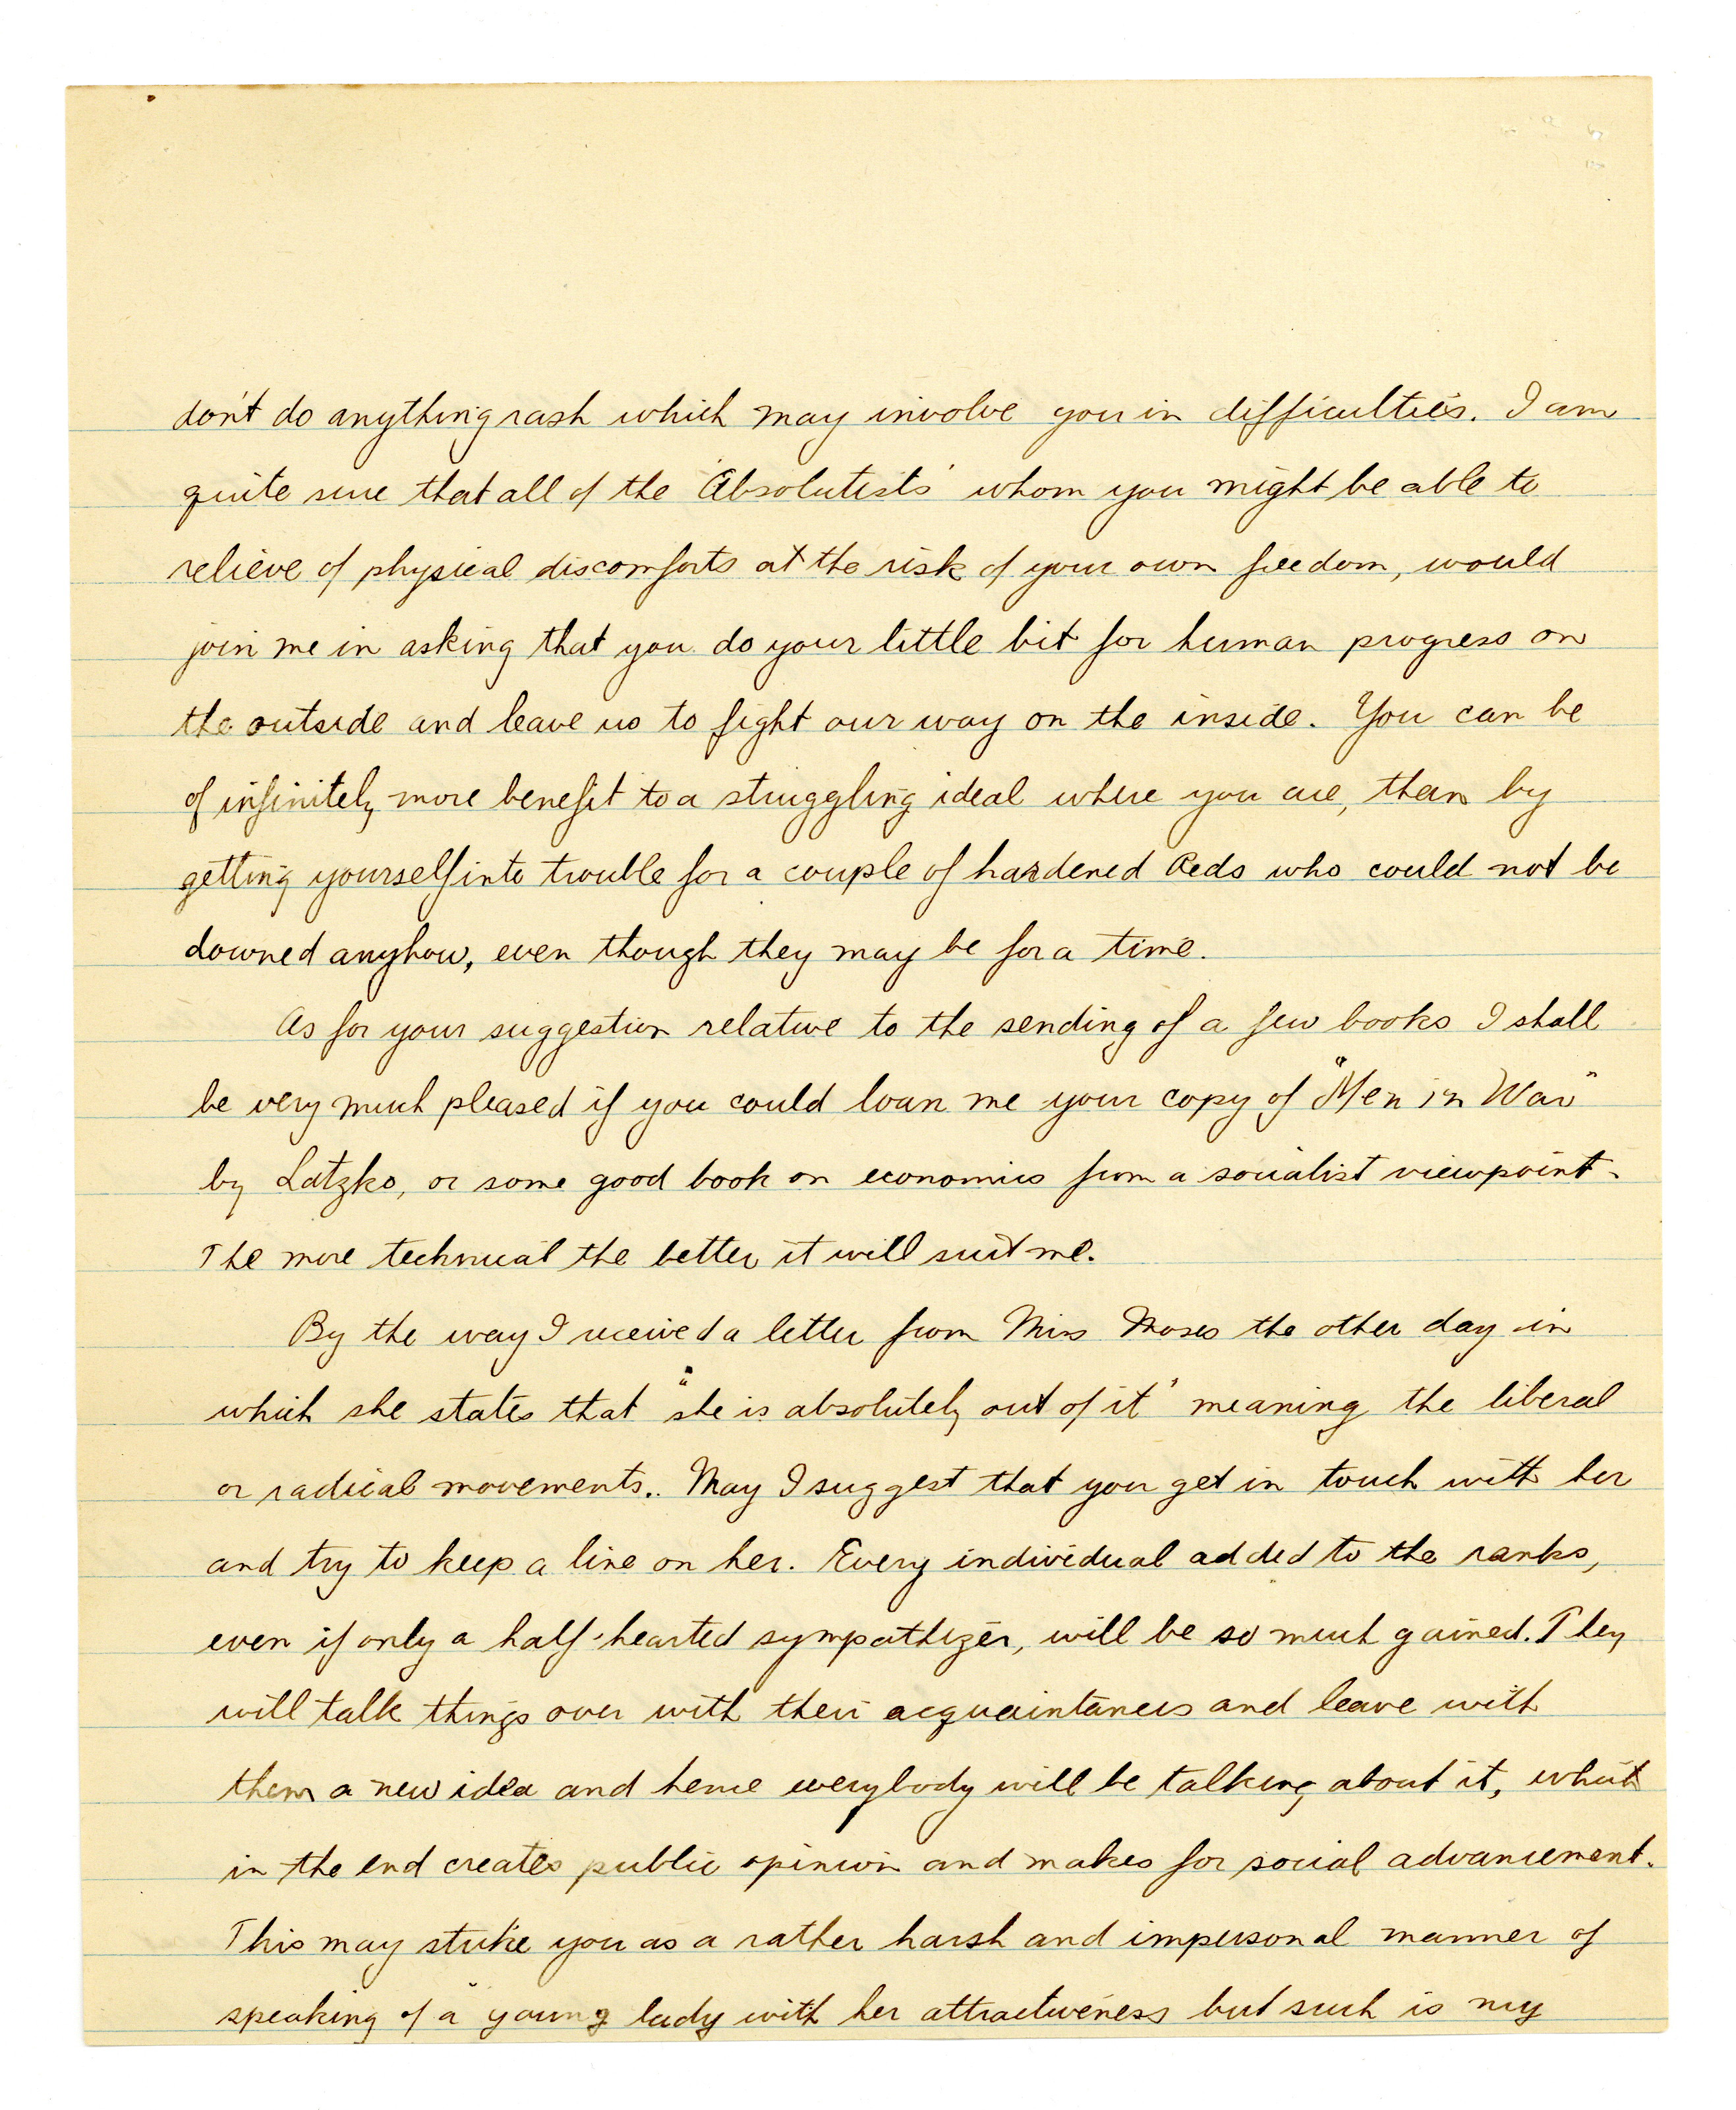 don't do anything rash which may involve you in difficulties. I am
quite sure that all of the 'Absolutists' whom you might be able to
relieve of physical discomforts at the risk of your own freedom, would
join me in asking that you do your little bit for human progress on
the outside and leave us to fight our way on the inside. You can be
of infinitely more benefit to a struggling ideal where you are, than by
getting yourself into trouble for a couple of hardened Reds who could not be
downed anyhow, even though they may be for a time.
As for your suggestion relative to the sending of a few books I shall
be very much pleased if you could loan me your copy of "Men in War"
by Latzko, or some good book on economics from a socialist viewpoint.
The more technical the better it will suit me.
By the way I received a letter from Miss Moses the other day in
which she states that "she is absolutely out of it" meaning the liberal
or radical movements. May I suggest that you get in touch with her
and try to keep a line on her. Every individual added to the ranks,
even if only a half-hearted sympathizer, will be so much gained. They
will talk things over with their acquaintances and leave with
them a new idea and hence everybody will be talking about it, which
in the end creates public opinion and makes for social advancement.
This may strike you as a rather harsh and impersonal manner of
speaking of a young lady with her attractiveness but such is my